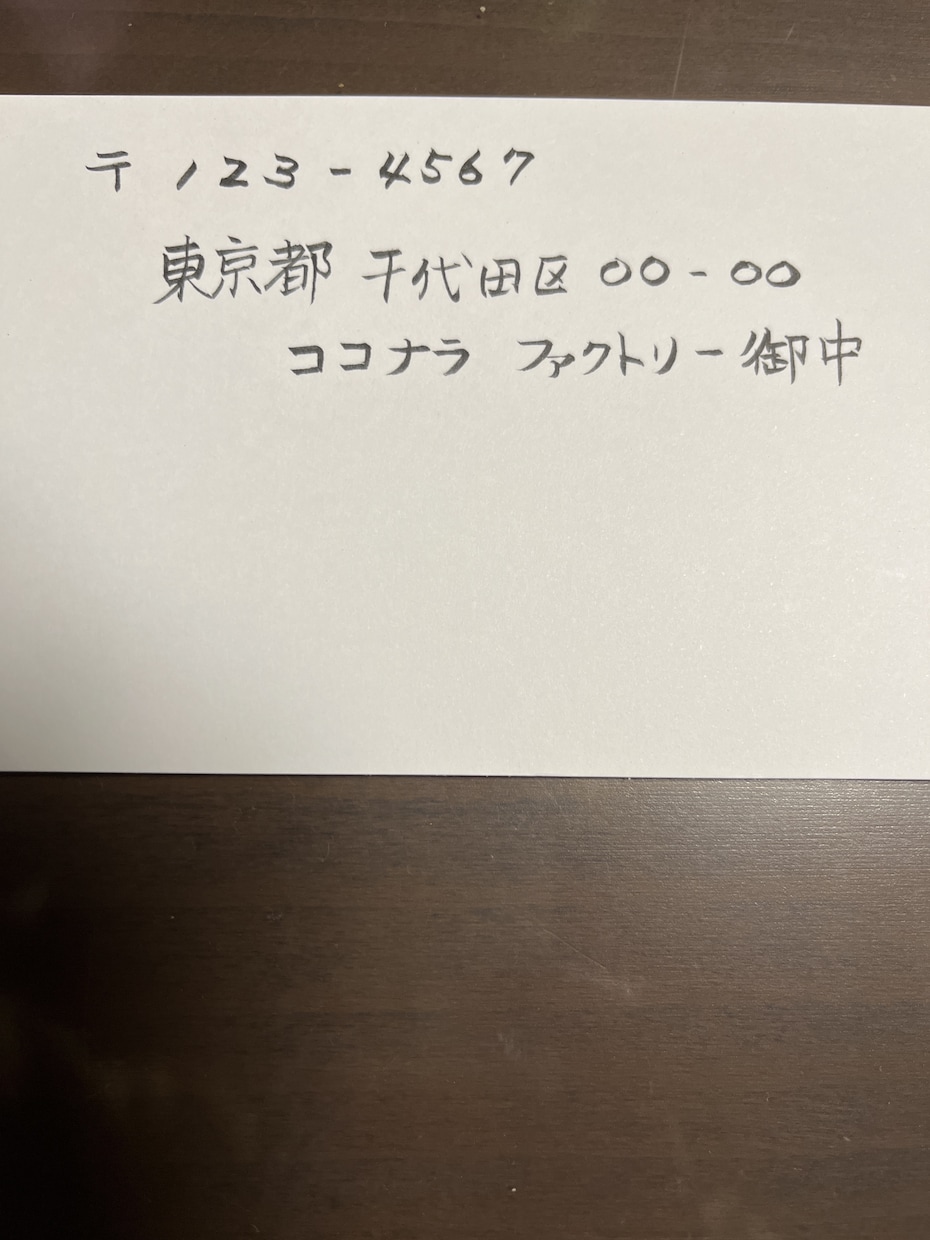 〒 123-4567
東京都 千代田区 00-00
ココナラ ファクトリー 御中